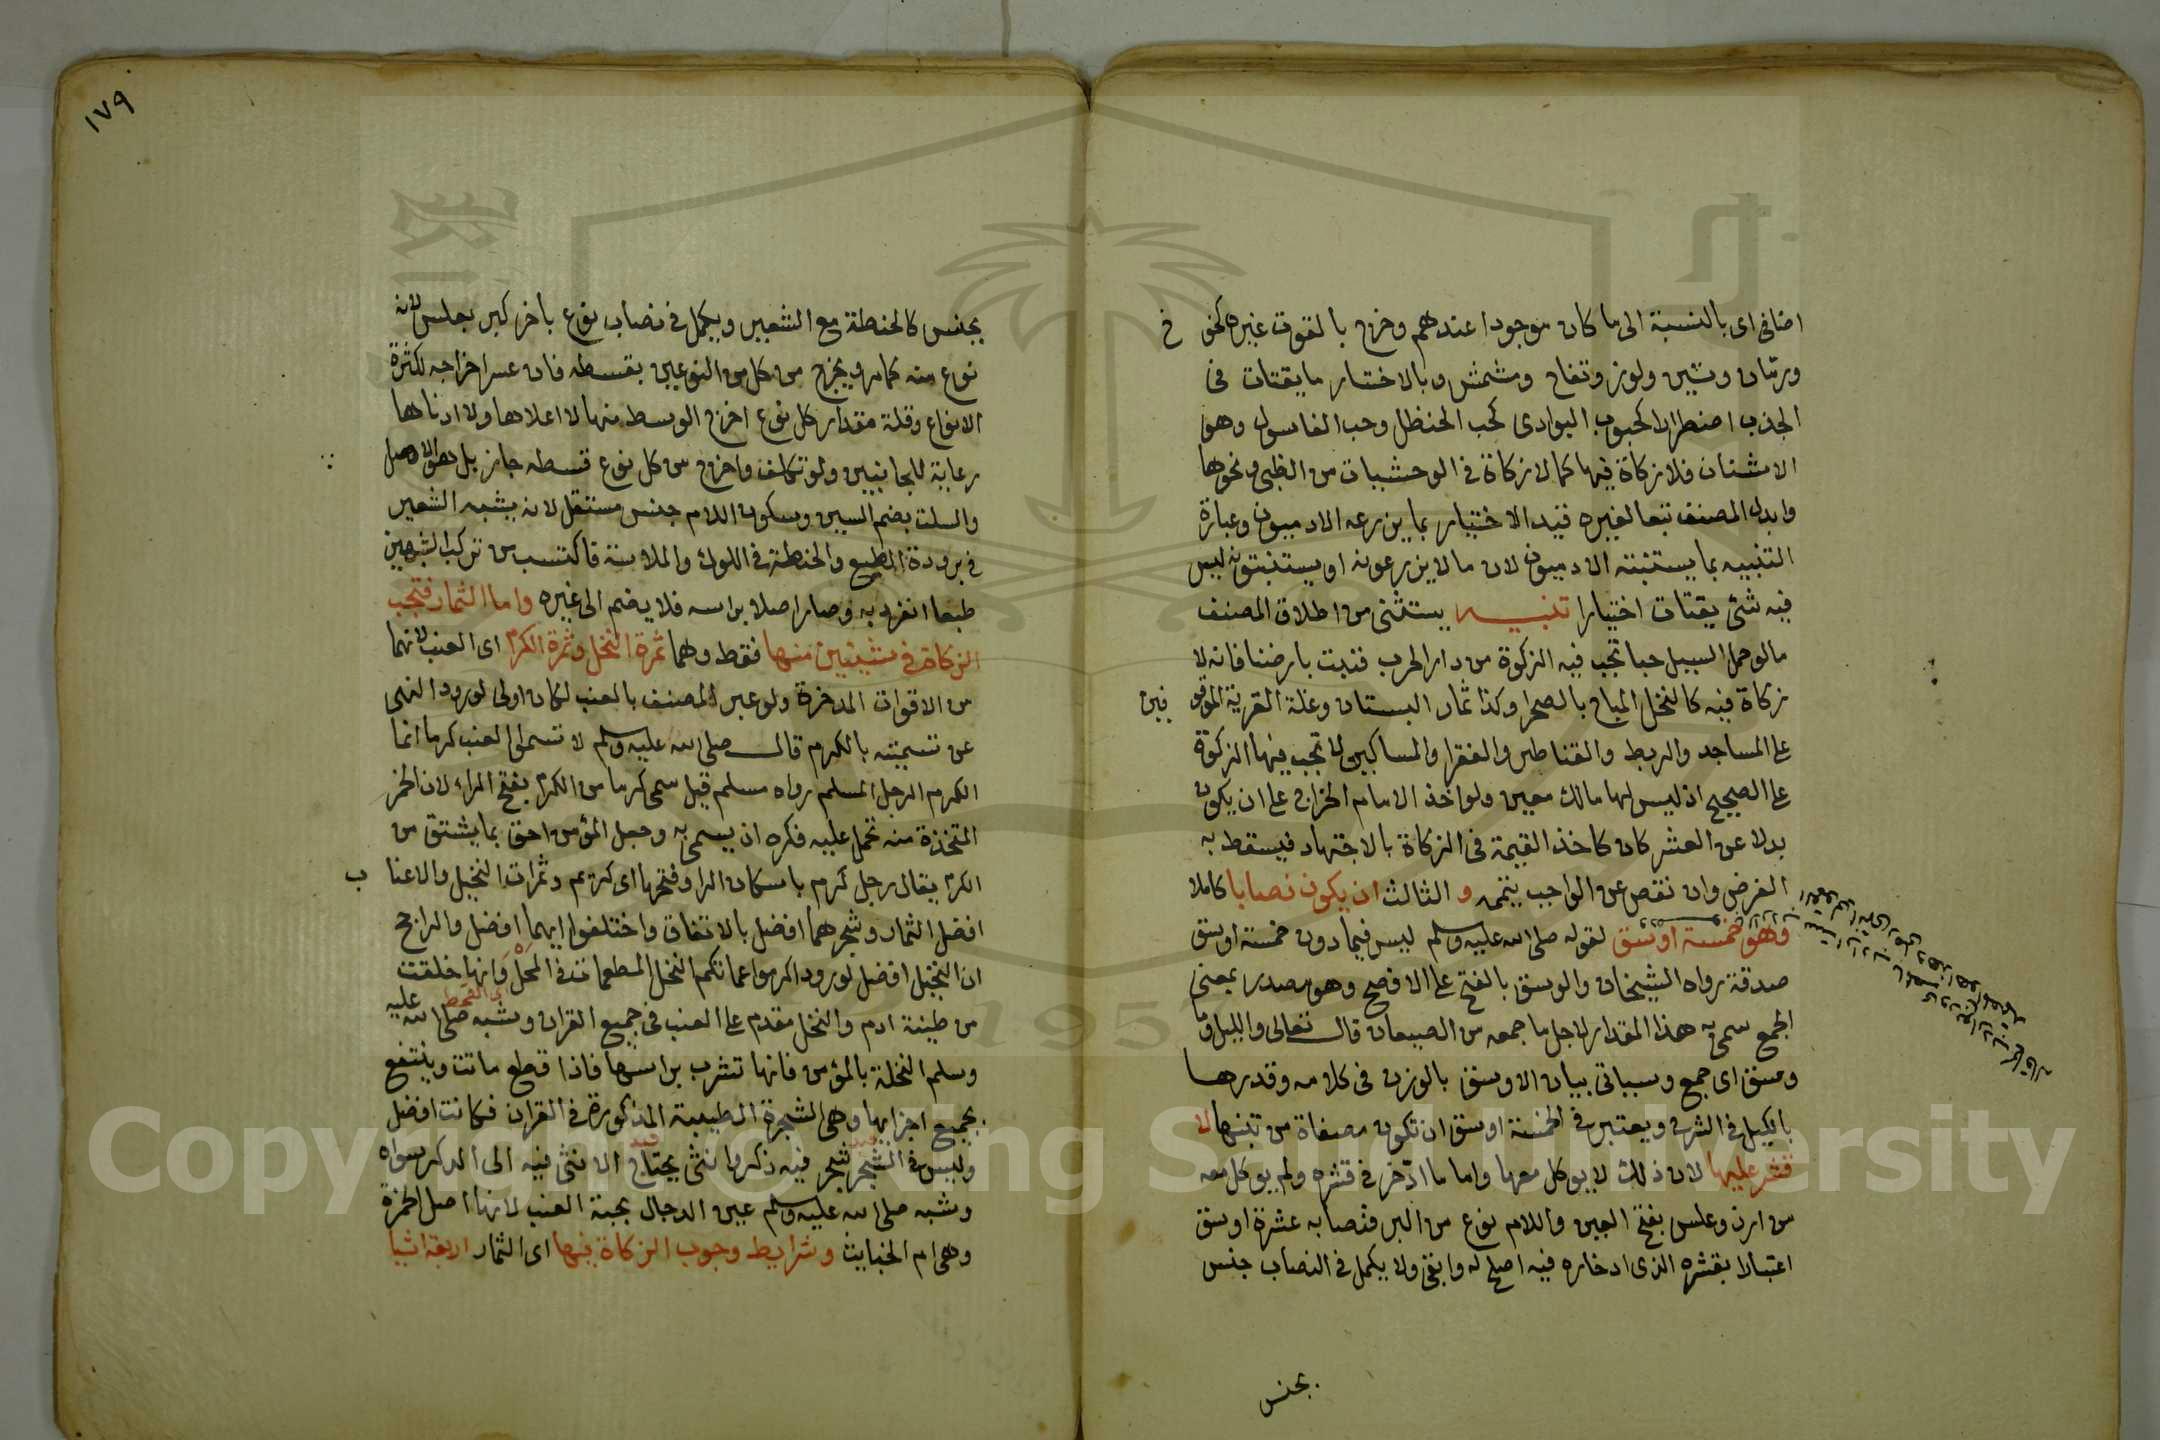 اضافي اي بالنسبة الى ما كان موجودا عندهم وخرج بالقوت غيره كخو
خ
ورمان وتين ولوز وتفاح ومشمش وبالاختيار ما يقتات في
الجدب اضطرارا كحبوب البوادي كحب الحنظل وحب الغاسول وهو
الاشنان فلا زكاة فيها كما لا زكاة في الوحشيات من الظبي ونحوها
وابدل المصنف تبعا لغيره قيد الاختيار بما يزرعه الادميون وعبارة
التنبيه بما يستنبته الادميون لان ما لا يزرعونه او يستنبتونه ليس
فيه شئ يقتات اختيارا تنبيه يستثنى من اطلاق المصنف
ما لو حمل السيل حبا تجب فيه الزكوة من دار الحرب فنبت بارضنا فانه لا
زكاة فيه كالنخل المباح بالصحرا وكذا ثمار البستان وغلة القرية الموقو
فين
على المساجد والربط والقناطر والفقرا والمساكين لا تجب فيها الزكوة
على الصحيح اذ ليس لها مالك معين ولو اخذ الامام الخراج على ان يكون
بدلا عن العشر كان كاخذ القيمة في الزكاة بالاجتهاد فيسقط به
الفرض وان نقص عن الواجب يتمه و الثالث ان يكون نصابا كاملا
وهو خمسة اوسق لقوله صلى الله عليه وسلم ليس فيما دون خمسة اوسق
صدقة رواه الشيخان والوسق بالفتح على الافصح وهو مصدر بمعنى
الجمع سمي به هذا المقدار لاجل ما جمعه من الصيعان قال تعالى والليل وما
وسق اي جمع وسياتي بيان الاوسق بالوزن في كلامه وقدرها
بالكيل في الشرح ويعتبر في الخمسة اوسق ان تكون مصفاة من تبنها لا
قشر عليها لان ذلك لا يوكل معها واما ما ادخر في قشره ولم يوكل معه
من ارز وعلس بفتح العين واللام نوع من البر فنصابه عشرة اوسق
اعتبارا بقشره الذي ادخاره فيه اصلح له وابقى ولا يكمل في النصاب جنس
بجنس
١٧٩
بجنس كالحنطة مع الشعير ويكمل في نصاب نوع باخر كبر بعلس لانه
نوع منه كما مر ويخرج من كل من النوعين بقسطه فان عسر اخراجه لكثرة
الانواع وقلة مقدار كل نوع اخرج الوسط منها لا اعلاها ولا ادناها
رعاية للجانبين ولو تكلف واخرج من كل نوع قسطه جاز بل هو الافضل
والسلت بضم السين وسكون اللام جنس مستقل لانه يشبه الشعير
في برودة الطبع والحنطة في اللون والملاسة فاكتسب من تركب الشبهين
طبعا انفرد به وصار اصلا براسه فلا يضم الى غيره واما الثمار فتجب
الزكاة في شيئين منها فقط وهما ثمرة النخل وثمرة الكرم اي العنب لانهما
من الاقوات المدخرة ولو عبر المصنف بالعنب لكان اولى لورود النهي
عن تسميته بالكرم قال صلى الله عليه وسلم لا تسموا العنب كرما انما
الكرم الرجل المسلم رواه مسلم قيل سمي كرما من الكرم بفتح الراء لان الخمر
المتخذة منه تحمل عليه فكره ان يسمى به وجعل المؤمن احق بما يشتق من
الكرم يقال رجل كرم باسكان الرا وفتحها اي كريم وثمرات النخيل والاعنا
ب
افضل الثمار وشجرهما افضل بالاتفاق واختلفوا ايهما افضل والراجح
ان النخيل افضل لورود اكرموا عماتكم النخل المطعمات في المحل وانها خلقت
من طينة ادم والنخل مقدم على العنب في جميع القران وشبه صلى الله عليه
وسلم النخلة بالمؤمن فانها تشرب براسها فاذا قطع ماتت وينتفع
بجميع اجزايها وهي الشجرة الطيبة المذكورة في القران فكانت افضل
وليس في الشجر شجر فيه ذكر وانثى يحتاج الانثى فيه الى الذكر سواه
وشبه صلى الله عليه وسلم عين الدجال بحبة العنب لانها اصل الخمرة
وهي ام الخبايث وشرايط وجوب الزكاة فيها اي الثمار اربعة اشيا